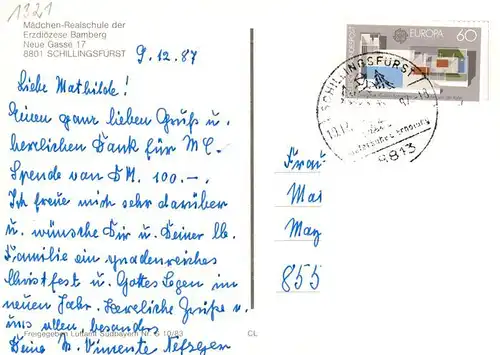 1321
Mädchen-Realschule der
Erzdiözese Bamberg
Neue Gasse 17
8801 SCHILLINGSFÜRST
9.12.87
Liebe Mathilde!
Einen ganz lieben Gruß u.
herzlichen Dank für M C.
Spende von DM. 100.-.
Ich freue mich sehr darüber
u. wünsche Dir u. Deiner lb.
Familie ein gnadenreiches
Christfest u. Gottes Segen im
neuen Jahr. Herzliche Grüße v.
uns allen, besonders
Deine
Freigegeben Luftamt Südbayern Nr. G 10/83
CL
EUROPA 60
SCHILLINGSFÜRST
8813
Frau
Mat
May
855